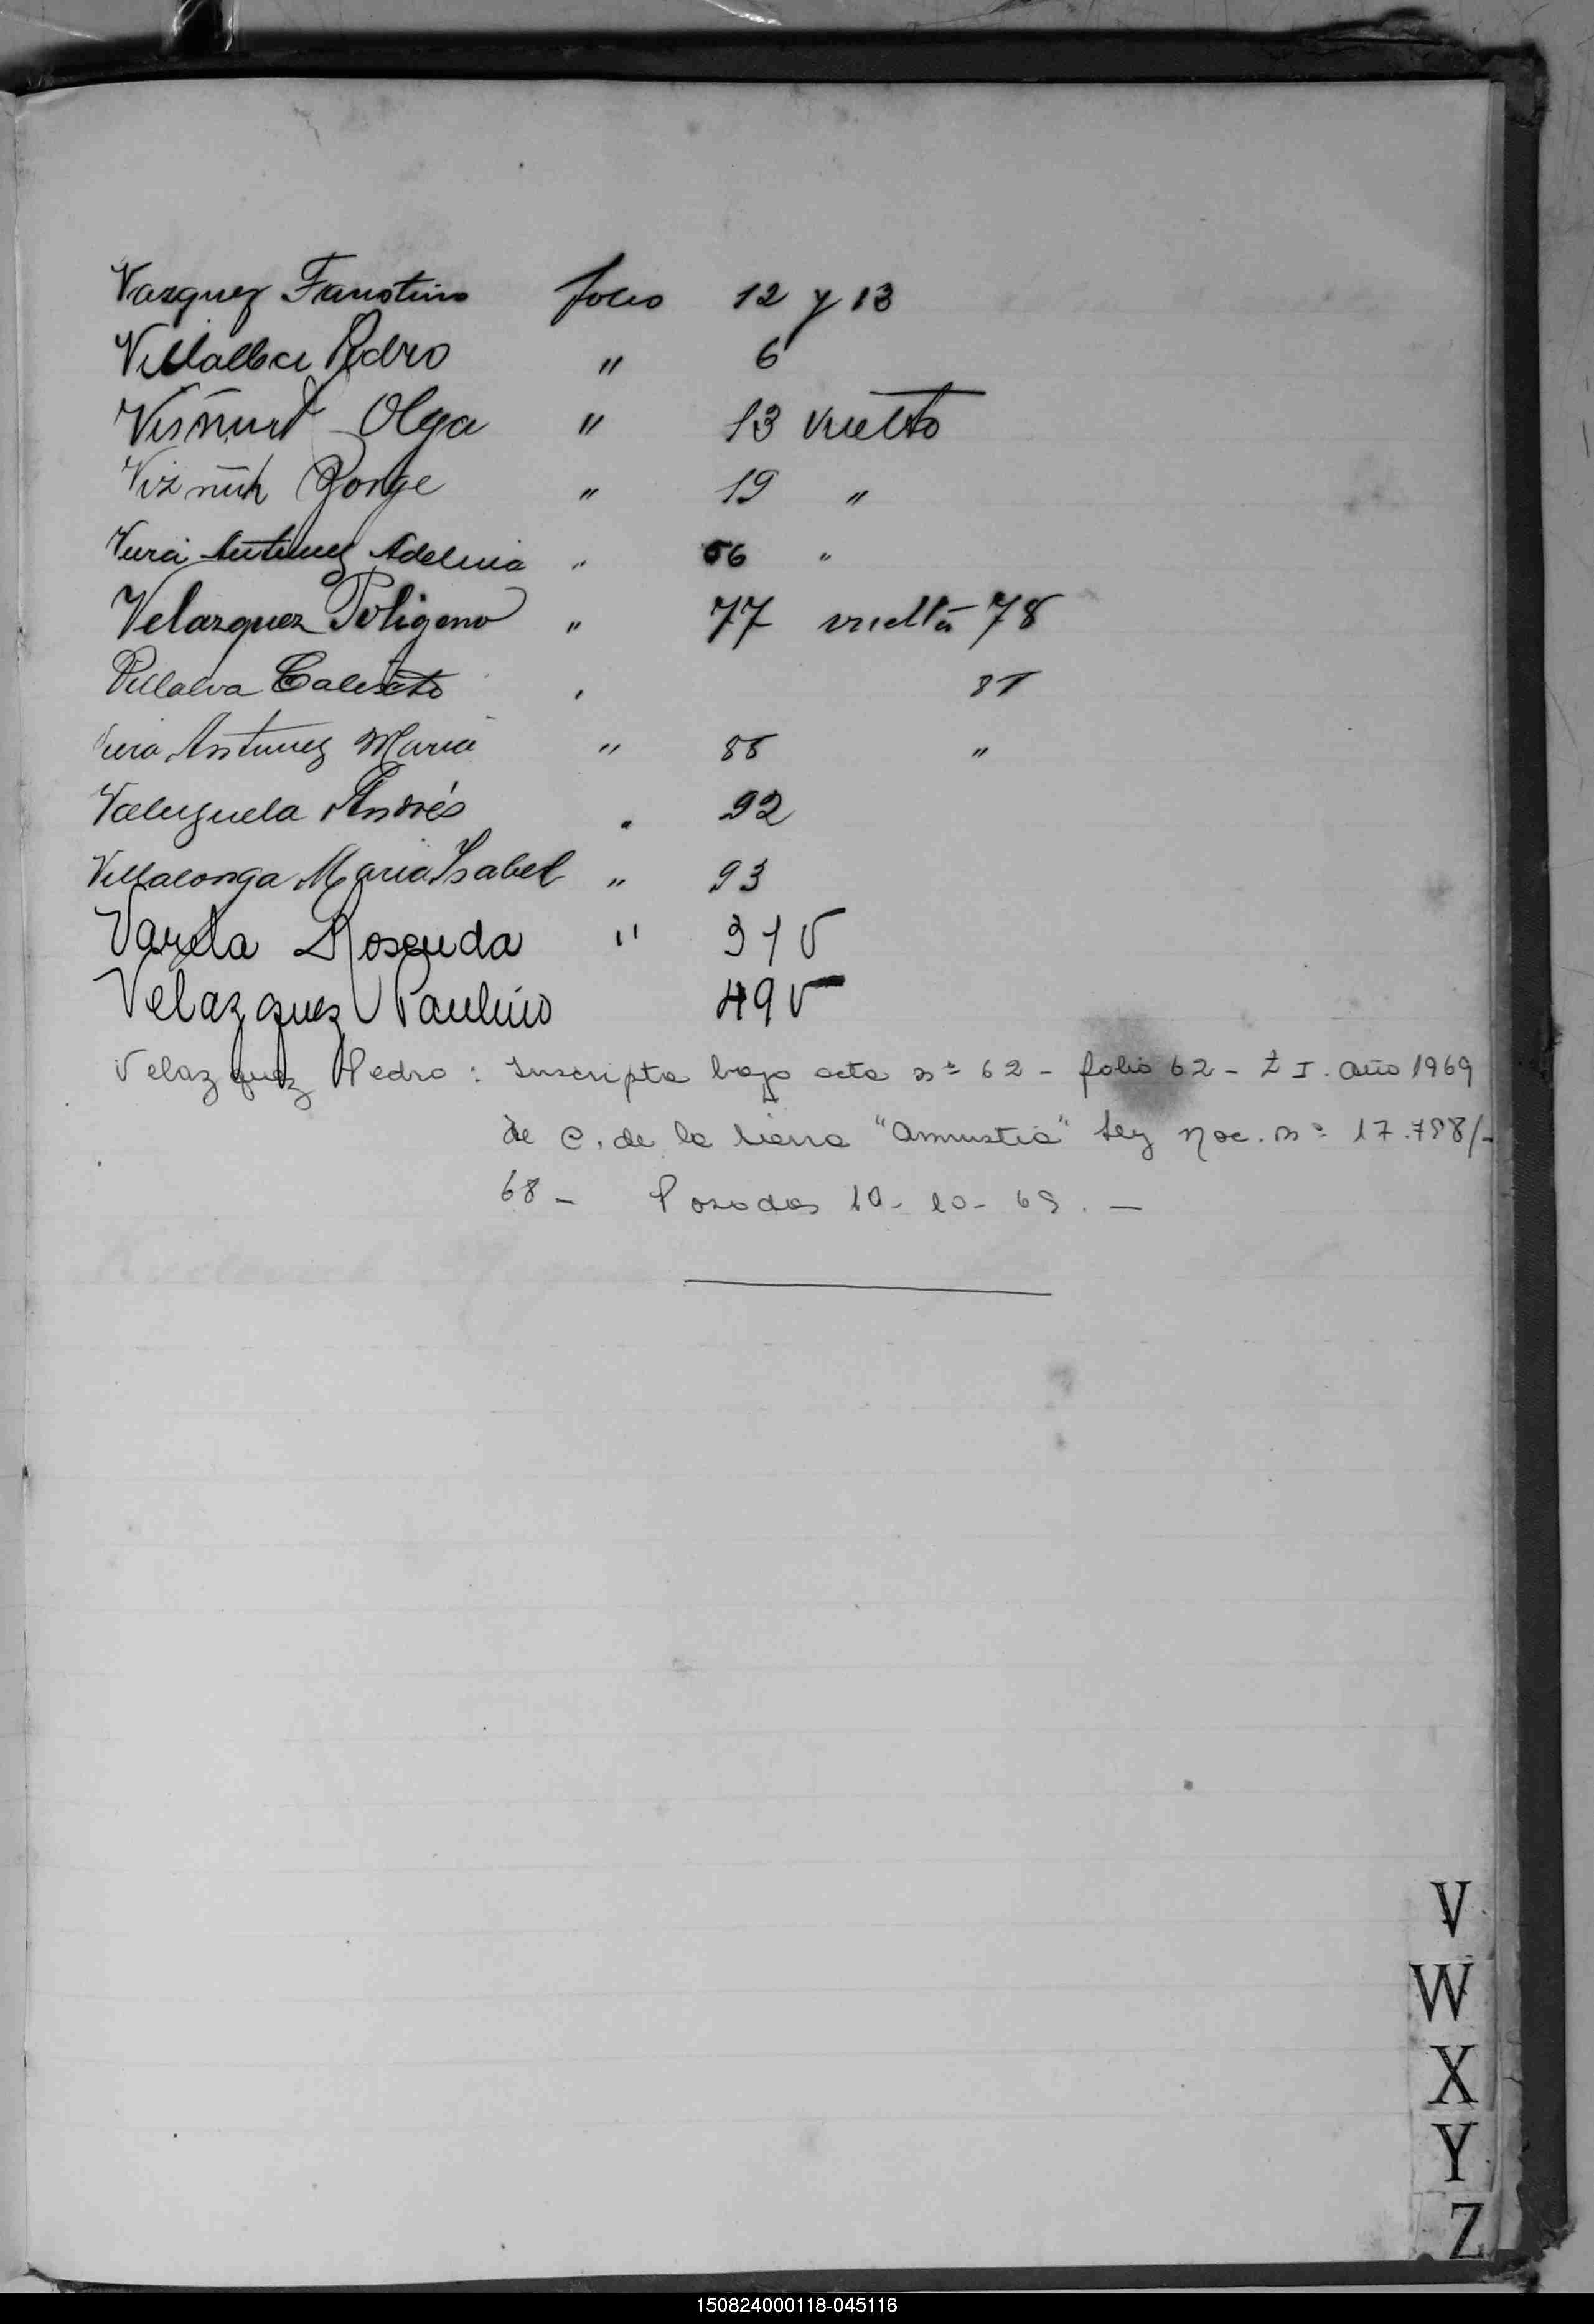 Vazquez Faustino folio 12 y 13
Villalba Pedro " 6
Visñuk Olga " 13 vuelto
Vizñuk Jorge " 19 "
Antunez Adelina " 66 "
Velazquez Poligeno " 77 vuelta 78
Villalva Calixto " 81
Antunez Maria " 88 "
Valenzuela Andrés " 92
Villalonga Maria Isabel " 93
Varela Rosenda " 31 V
Velazquez Paulino 49 V
Velazquez Pedro : Inscripta bajo acta nº 62 - folio 62 - T I. año 1969
de C. de la Sierra "Amnistia" Ley Nac. nº 17.798/-
68 - Posadas 10-10-69. —
V
W
X
Y
Z
150824000118-045116